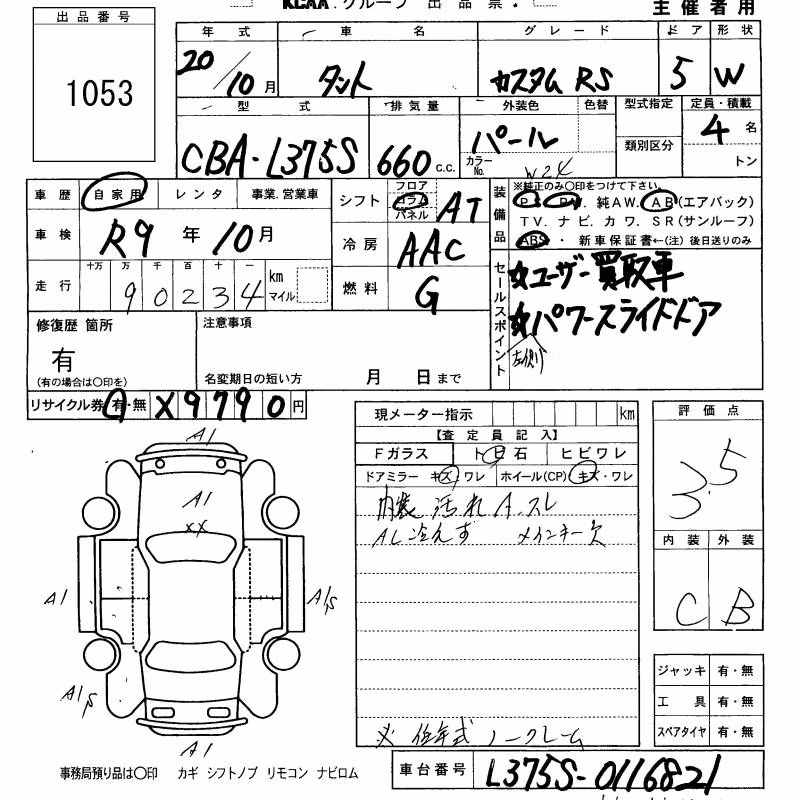 KCAA.グループ 出品票. 主催者用
出品番号
1053
年式 車名 グレード ドア 形状
20/10月 タント カスタム RS 5 W
型式 排気量 外装色 色替 型式指定 定員・積載
CBA-L375S 660 c.c. パール カラーNo. W24 類別区分 4名 トン
車歴 自家用 レンタ 事業.営業車
シフト フロア コラム パネル AT
装備品 ※純正のみ〇印をつけて下さい。
PS PW 純AW. AB (エアバック)
TV. ナビ. カワ. SR (サンルーフ)
ABS・ 新車保証書←(注) 後日送りのみ
車検 R9年10月
冷房 AAC
走行 十万 万 千 百 十 一
90234 km マイル
燃料 G
セールスポイント
☆ユーザー買取車
☆パワースライドドア
左側
修復歴 箇所
有
(有の場合は〇印を)
注意事項
名変期日の短い方 月 日まで
リサイクル券 有・無 ¥9790円
現メーター指示 km
【査定員記入】
Fガラス トビ石 ヒビワレ
ドアミラー キズ・ワレ ホイール(CP) キズ・ワレ
内装 汚れ A.スレ
AC冷えず メインキー欠
※ 低年式 ノークレーム
評価点
3.5
内装 外装
C B
ジャッキ 有・無
工具 有・無
スペアタイヤ 有・無
A1
A1
XX
A1
A1S
A1S
A1
事務局預り品は〇印 カギ シフトノブ リモコン ナビロム
車台番号 L375S-0116821